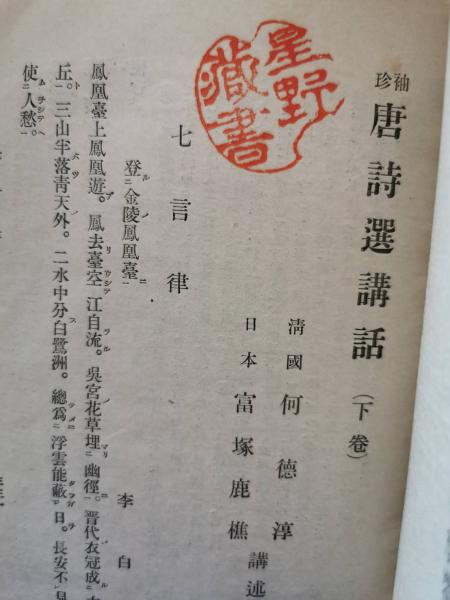 袖珍
唐詩選講話(下卷)
清國 何德淳
日本 富塚鹿樵 講述
星野
藏書
七言律
登金陵鳳凰臺
李白
鳳凰臺上鳳凰遊。鳳去臺空江自流。吳宮花草埋幽徑。晉代衣冠成
丘。三山半落青天外。二水中分白鷺洲。總爲浮雲能蔽日。長安不見
使人愁。